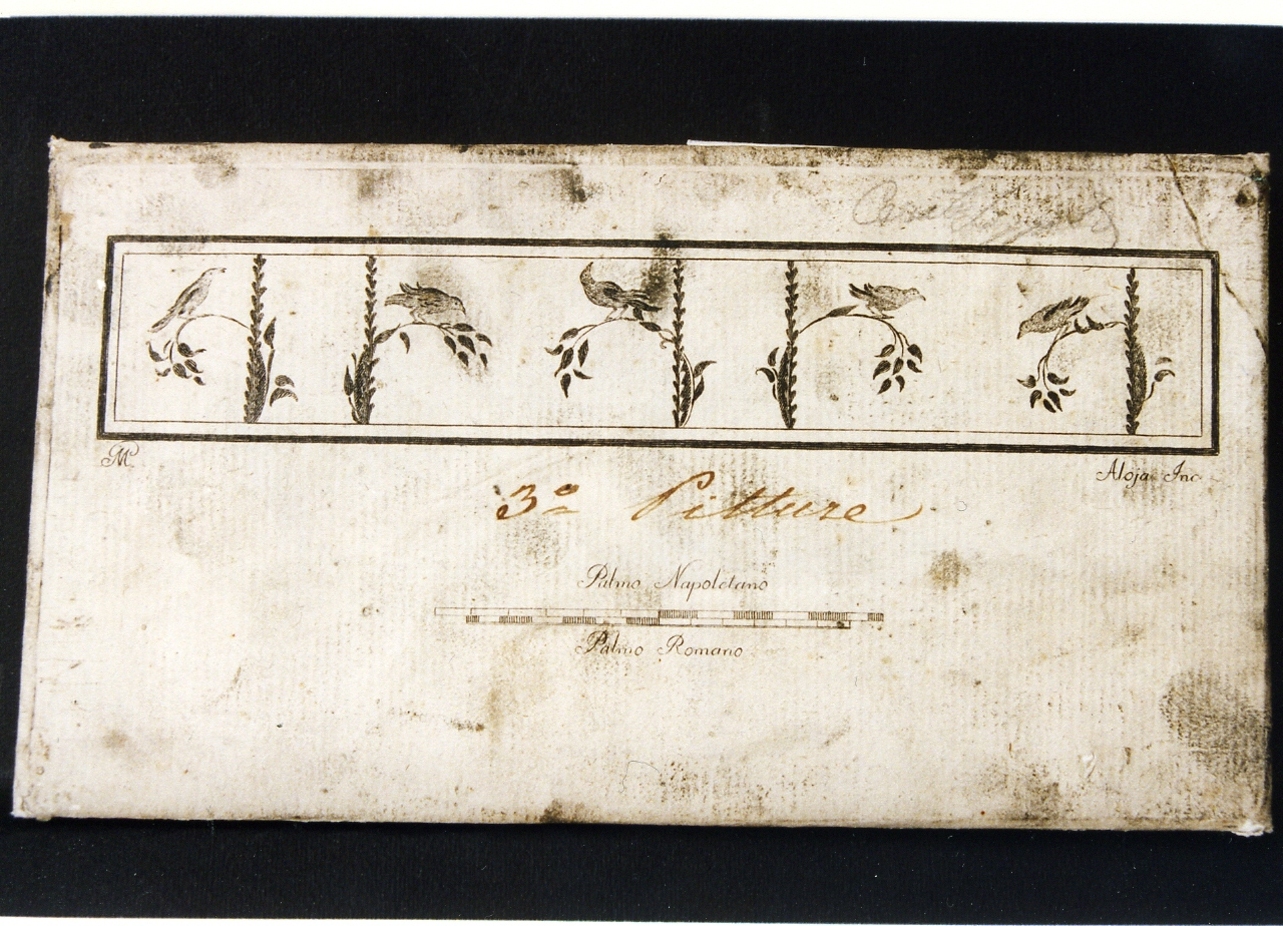 M
Aloja Inc
3º Pitture
Palmo Napoletano
Palmo Romano